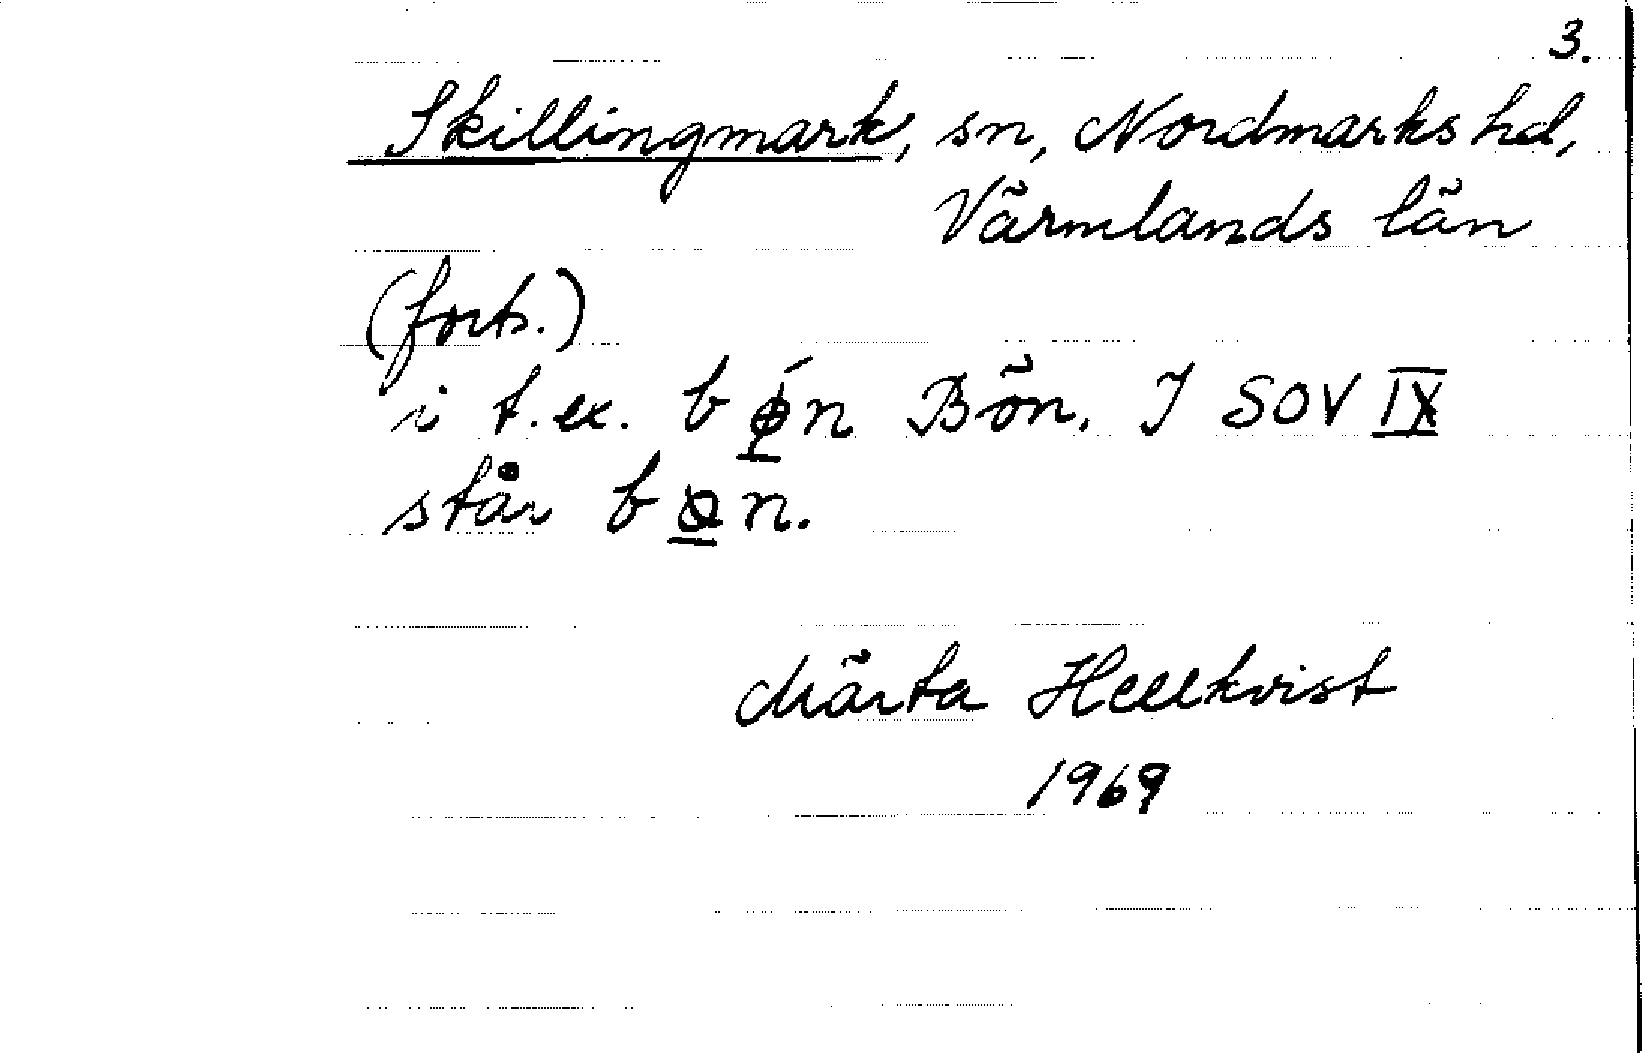 3.
Skillingmark, sn, Nordmarks hd,
Värmlands län
(forts.)
i t.ex. b ǿ n Bön. I SOV IX
står b ø n.
Märta Hellkvist
1969